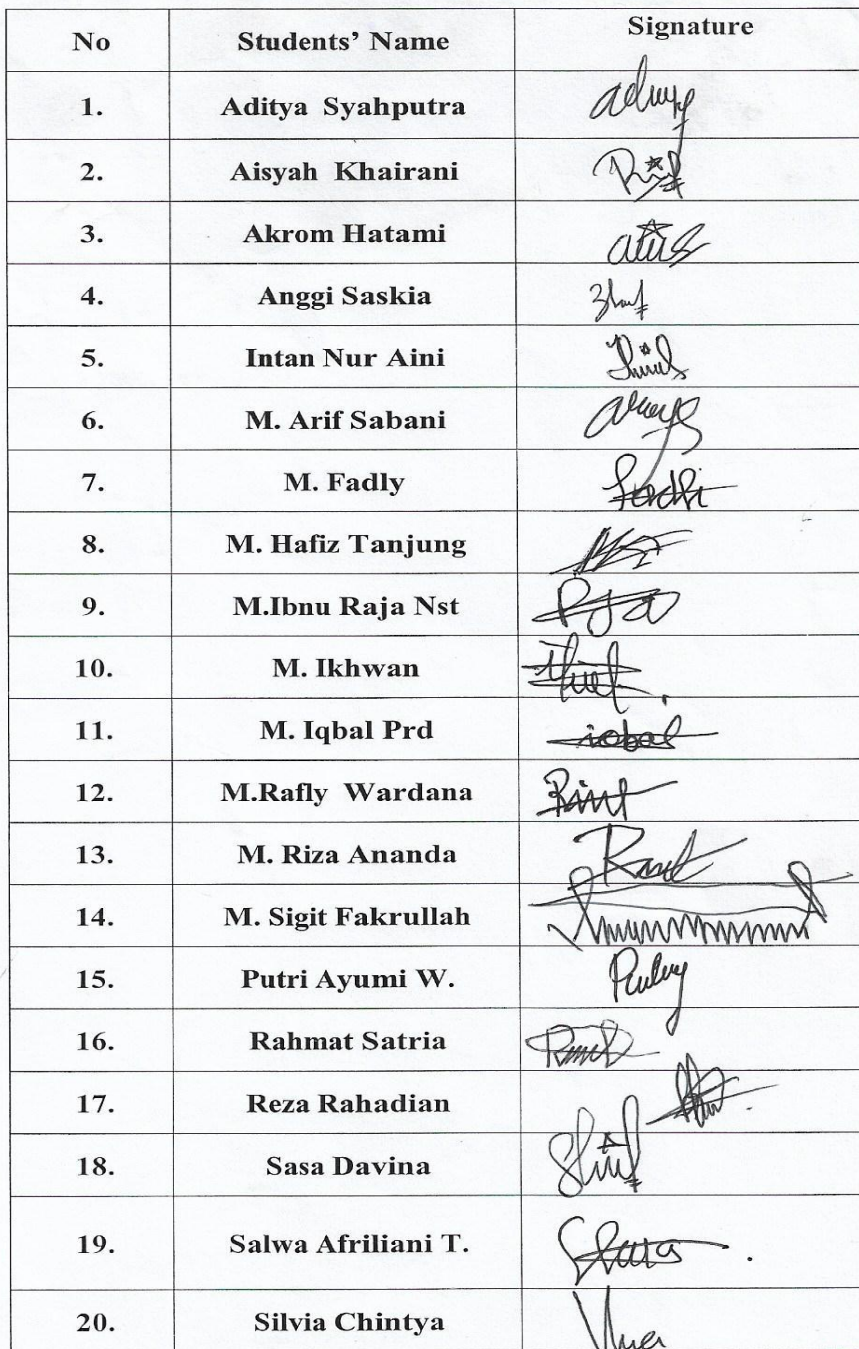 No Students' Name Signature
1. Aditya Syahputra
2. Aisyah Khairani
3. Akrom Hatami
4. Anggi Saskia
5. Intan Nur Aini
6. M. Arif Sabani
7. M. Fadly
8. M. Hafiz Tanjung
9. M.Ibnu Raja Nst
10. M. Ikhwan
11. M. Iqbal Prd iqbal
12. M.Rafly Wardana
13. M. Riza Ananda
14. M. Sigit Fakrullah
15. Putri Ayumi W.
16. Rahmat Satria
17. Reza Rahadian
18. Sasa Davina
19. Salwa Afriliani T.
20. Silvia Chintya